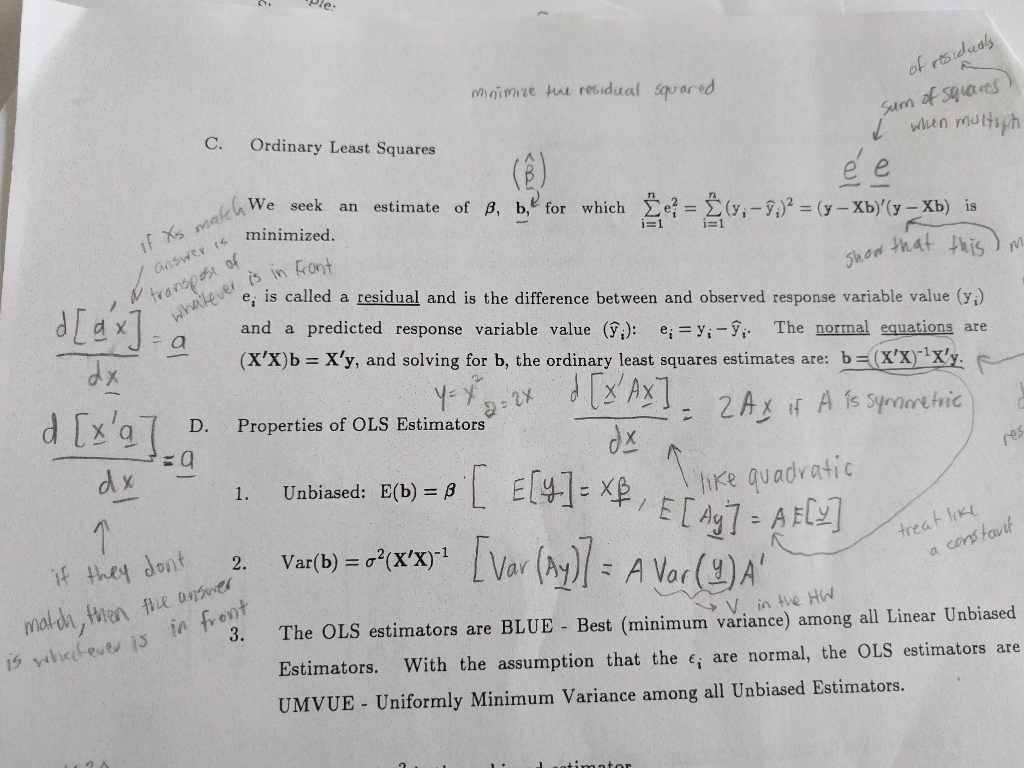 minimize the residual squared
of residuals
sum of squares
when
C. Ordinary Least Squares
(β̂)
e' e
We seek an estimate of β, b, for which Σⁿᵢ₌₁ eᵢ² = Σⁿᵢ₌₁ (yᵢ − ŷᵢ)² = (y − Xb)'(y − Xb) is
minimized.
show that this
if Xs match
answer is
transpose of
whatever is in front
d[a'x] / dx = a
eᵢ is called a residual and is the difference between and observed response variable value (yᵢ)
and a predicted response variable value (ŷᵢ): eᵢ = yᵢ − ŷᵢ. The normal equations are
(X'X)b = X'y, and solving for b, the ordinary least squares estimates are: b = (X'X)⁻¹X'y.
y = x² = 2x
d[x'Ax] / dx = 2Ax if A is symmetric
res
d[x'a] / dx = a
D. Properties of OLS Estimators
like quadratic
1. Unbiased: E(b) = β [ E[y] = Xβ, E[Ay] = A E[y]
treat like
a constant
if they dont
match, then the answer
is whatever is in front
2. Var(b) = σ²(X'X)⁻¹ [Var(Ay)] = A Var(y) A'
→ V in the HW
3. The OLS estimators are BLUE - Best (minimum variance) among all Linear Unbiased
Estimators. With the assumption that the ϵᵢ are normal, the OLS estimators are
UMVUE - Uniformly Minimum Variance among all Unbiased Estimators.